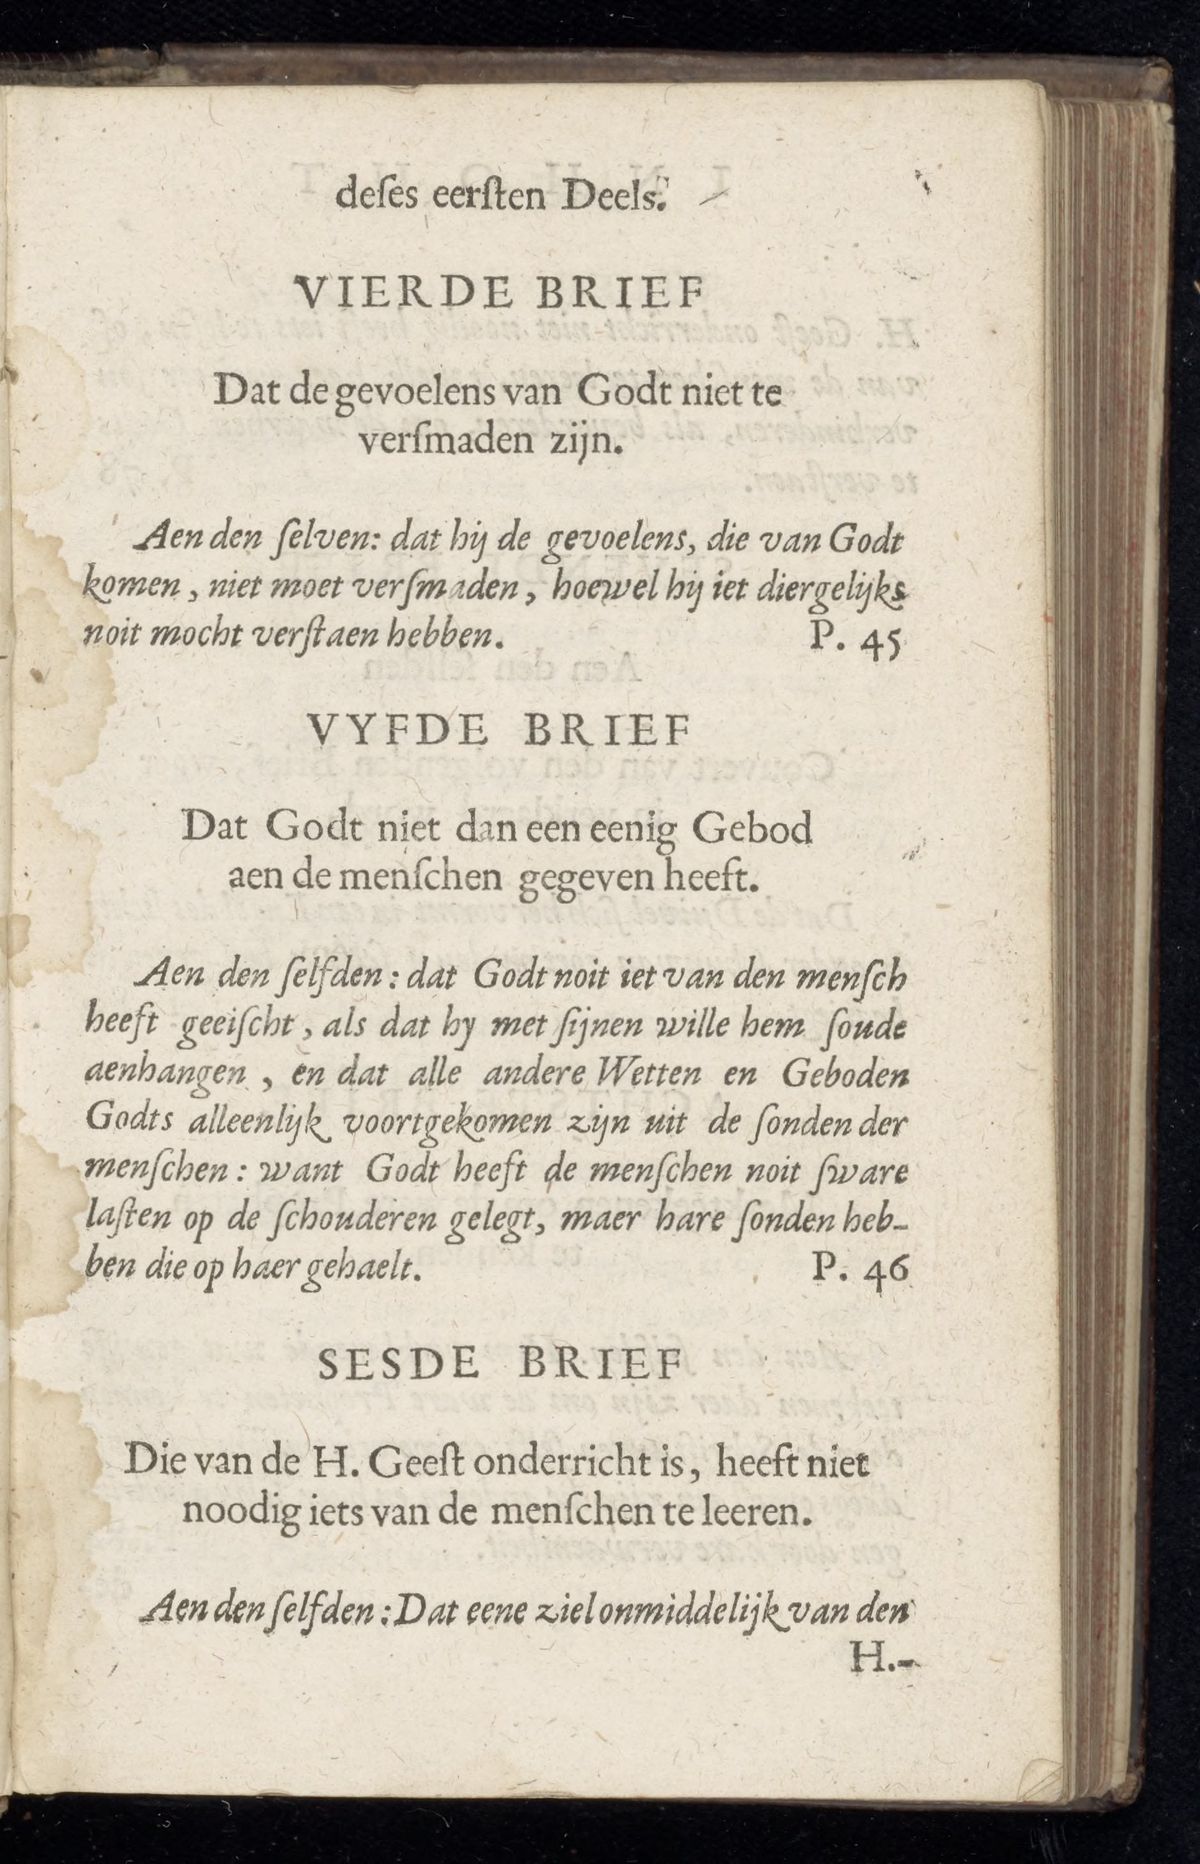 deſes eerſten Deels.
VIERDE BRIEF
Dat de gevoelens van Godt niet te
verſmaden zijn.
Aen den ſelven: dat hij de gevoelens, die van Godt
komen, niet moet verſmaden, hoewel hij iet diergelijks
noit mocht verſtaen hebben. P. 45
VYFDE BRIEF
Dat Godt niet dan een eenig Gebod
aen de menſchen gegeven heeft.
Aen den ſelfden: dat Godt noit iet van den menſch
heeft geeiſcht, als dat hy met ſijnen wille hem ſoude
aenhangen, en dat alle andere Wetten en Geboden
Godts alleenlijk voortgekomen zijn uit de ſonden der
menſchen: want Godt heeft de menſchen noit ſware
laſten op de ſchouderen gelegt, maer hare ſonden heb-
ben die op haer gehaelt. P. 46
SESDE BRIEF
Die van de H. Geeſt onderricht is, heeft niet
noodig iets van de menſchen te leeren.
Aen den ſelfden: Dat eene ziel onmiddelijk van den
H.-